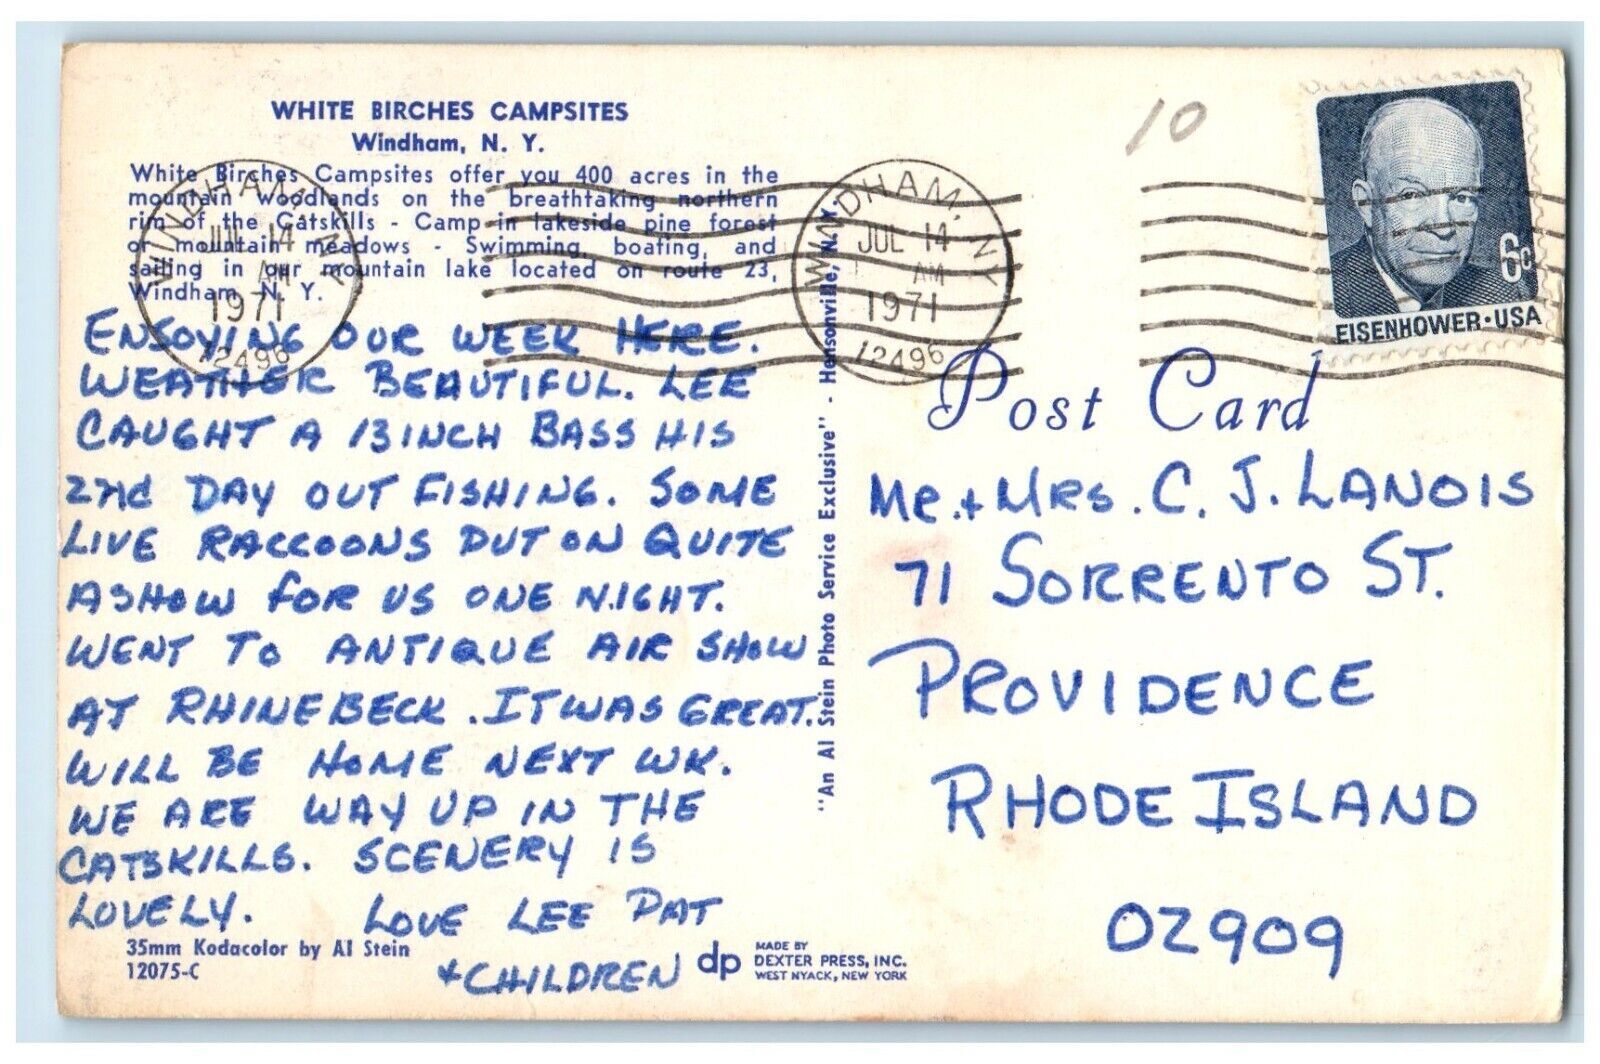 WHITE BIRCHES CAMPSITES
Windham, N. Y.
White Birches Campsites offer you 400 acres in the
mountain woodlands on the breathtaking northern
rim of the Catskills - Camp in lakeside pine forest
or mountain meadows - Swimming, boating, and
sailing in our mountain lake located on route 23,
Windham, N. Y.
WINDHAM, NY
JUL 14
AM
1971
12496
ENJOYING OUR WEEK HERE.
WEATHER BEAUTIFUL. LEE
CAUGHT A 13 INCH BASS HIS
2nd DAY OUT FISHING. SOME
LIVE RACCOONS PUT ON QUITE
A SHOW FOR US ONE NIGHT.
WENT TO ANTIQUE AIR SHOW
AT RHINEBECK. IT WAS GREAT.
WILL BE HOME NEXT WK.
WE ARE WAY UP IN THE
CATSKILLS. SCENERY IS
LOVELY. LOVE LEE PAT
+ CHILDREN
35mm Kodacolor by Al Stein
12075-C
dp
MADE BY
DEXTER PRESS, INC.
WEST NYACK, NEW YORK
"An Al Stein Photo Service Exclusive" - Hensonville, N.Y.
10
WINDHAM, NY
JUL 14
AM
1971
12496
6c
EISENHOWER·USA
Post Card
MR. + MRS. C. J. LANOIS
71 SORRENTO ST.
PROVIDENCE
RHODE ISLAND
02909